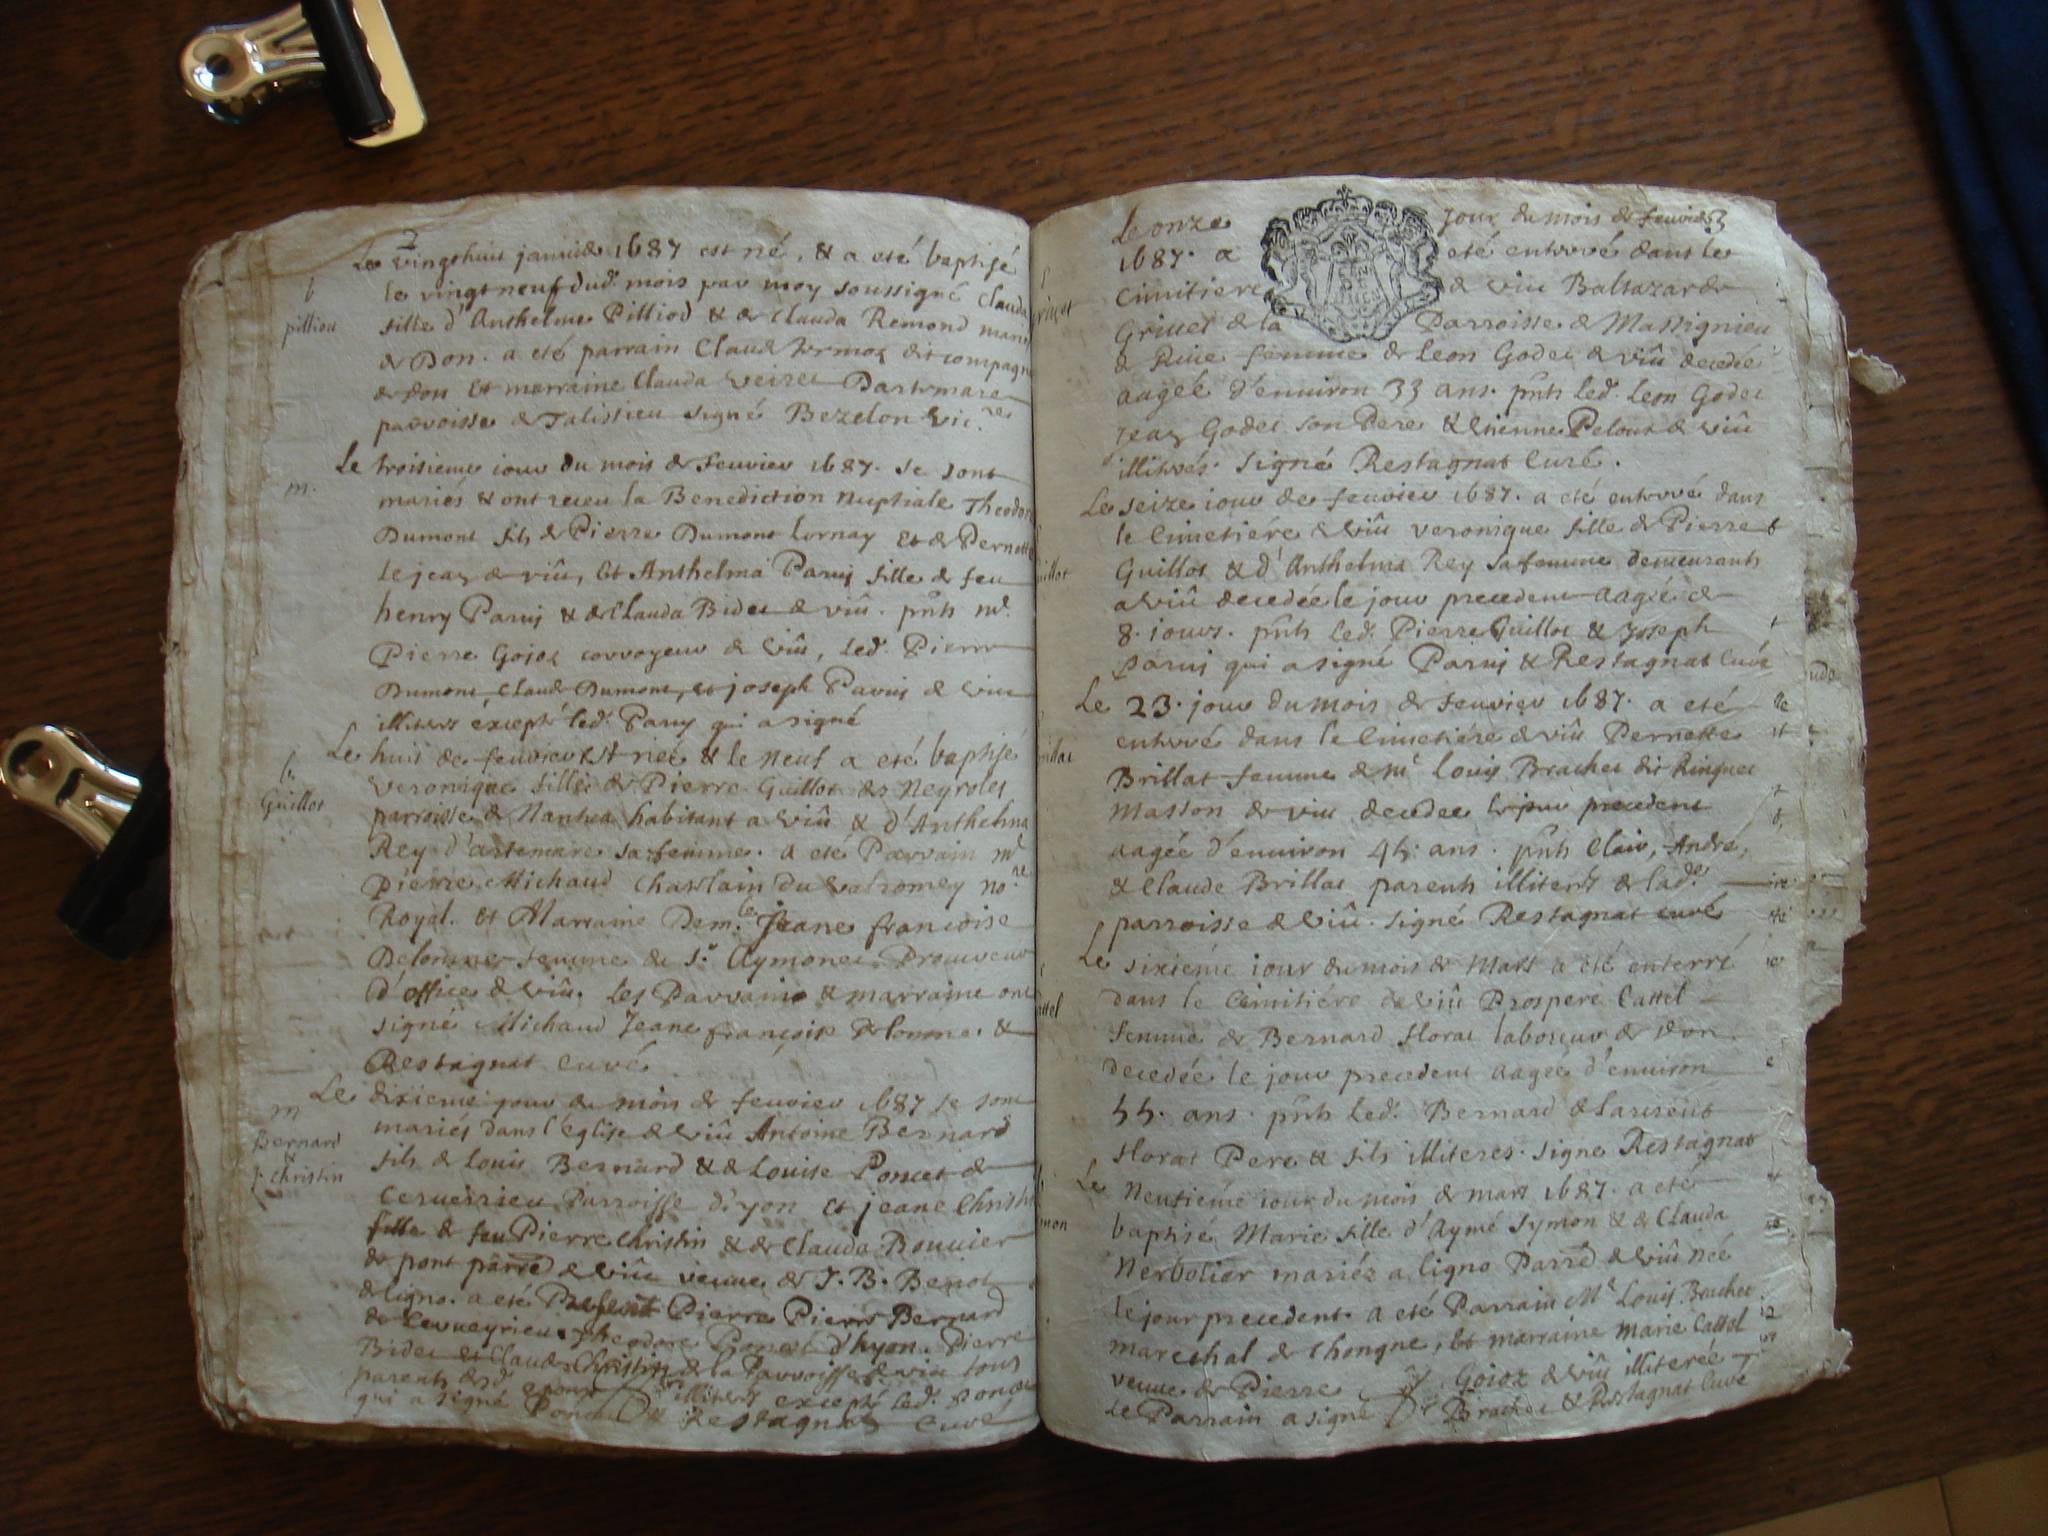 2
Le vingthuit janvier 1687 est né, & a eté baptisé
le vingt neuf dud. mois par moy soussigné Clauda
b
pilliou
fille d'Anthelme Pilliod & de Clauda Remond mari
de Don. a eté parrain Claud dit compagn
de don Et marraine Clauda veizet Dartemare
parroisse de Talissieu signé Bezelon vic.re
Le troisieme iour du mois de feuvier 1687. se sont
m.
mariés & ont receu la Benediction nuptiale Theodore
Dumont fils de Pierre Dumont Lornay et de Pernette
Lejeaz de viû, Et Anthelma Parug fille de feu
henry Parug & de Clauda Bidet de viû. pnts mr.
Pierre Gojoz corvoyeur de viû, led. Pierre
Dumont, Claud Dumont, et joseph Parug de viu
illiters excepté led. Parug qui a signé
Le huit de feuvier Est neé & le neuf a eté baptisé
b.
Guillot
veronique fille de Pierre Guillot de Neyroles
parroisse de Nantua habitant a viû & d'Anthelma
Rey d'artemare sa femme. a eté Parrain mr
Pierre Michaud Chastlain du valromey no.re
Royal. et Marraine Dem.le Jeane françoise
Delomme femme du Sr. Aymonet Procureur
d'office de viû. les Parrains & marraine ont
signé Michaud Jeane françoise Delomme. &
Restagnat curé
Le dixieme jour du mois de feuvier 1687 se sont
m
Bernard
&
j. christin
mariés dans l'église de viû Antoine Bernard
fils de Louis Bernard & de Louise Poncet de
Ceruerieu Parroisse d'yon et jeane Christi
fille de feu Pierre Christin & de Clauda Bouvier
de pont parre de viû veuve de J. B. Benot
de ligno. a eté Present Pierre Pierre Bernard
de Cerueyrieu, Theodore Poncet d'hyon. Pierre
Bidet et Claude Christin de la Parroisse de viu tous
parents illiters excepté led. Poncet
qui a signé Poncet Restagnat Curé
Le onze jour du mois de feuvier 3
1687. a eté enterré dans le
Cimitiere de viu Baltazarde
Grivet de la Parroisse de Massignieu
de Rive femme de Leon Godet de viû decedée
aagée d'environ 33 ans. pnts led. Leon Godet
Jeaz Godet son Pere & Etienne Pelout de viû
illitrés. signé Restagnat Curé.
Le seize iour de feuvier 1687. a eté enterré dans
le Cimetiére de viû veronique fille de Pierre
Guillot & d'Anthelma Rey sa femme demeurants
a viû decedée le jour precedent aagée de
8. iours. pnts led. Pierre Guillot & Joseph
Parug qui a signé Parug & Restagnat Curé
Le 23. jour du mois de feuvier 1687. a eté
enterré dans le Cimetiére de viû Pernette
Brillat femme de mr Louis Brachet dit Ringuet
Masson de viu decedee le jour precedent
aagée d'environ 45. ans. pnts Clair, André,
& Claude Brillat parents illiters de lad.
parroisse de viû. signé Restagnat curé
Le sixieme iour du mois de Mars a eté enterré
dans le Cemitiére de viû Prospere Cattel
femme de Bernard Florat laboreur de Don.
decedée le jour precedent aagée d'environ
55. ans. pnts led. Bernard & Laurent
Florat Pere & fils illiteres. signe Restagnat
Le Neufieme iour du mois de mars 1687. a eté
baptisé Marie fille d'Aymé Symon & de Clauda
Nerbolier mariés a ligno Parre de viû née
le jour precedent. a eté Parrain Mr Louis Brachet
marechal de Chongne, Et marraine Marie Cattel
veuve de Pierre Gojoz de viû illiterée
le Parrain a signé Brachet & Restagnat Curé